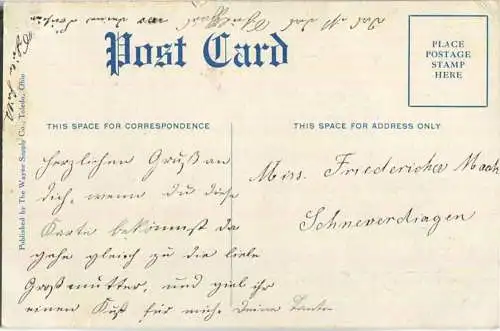 Post Card
PLACE
POSTAGE
STAMP
HERE
THIS SPACE FOR CORRESPONDENCE
THIS SPACE FOR ADDRESS ONLY
Herzlichen Gruß an
dich, wenn du diese
Karte bekommst da
gehe gleich zu die liebe
Großmutter, und gieb ihr
einen Kuß für mich. Deine Tante
Miss. Friedericha Mach
Schneverdiagen
Published by The Wayne Supply Co., Toledo, Ohio